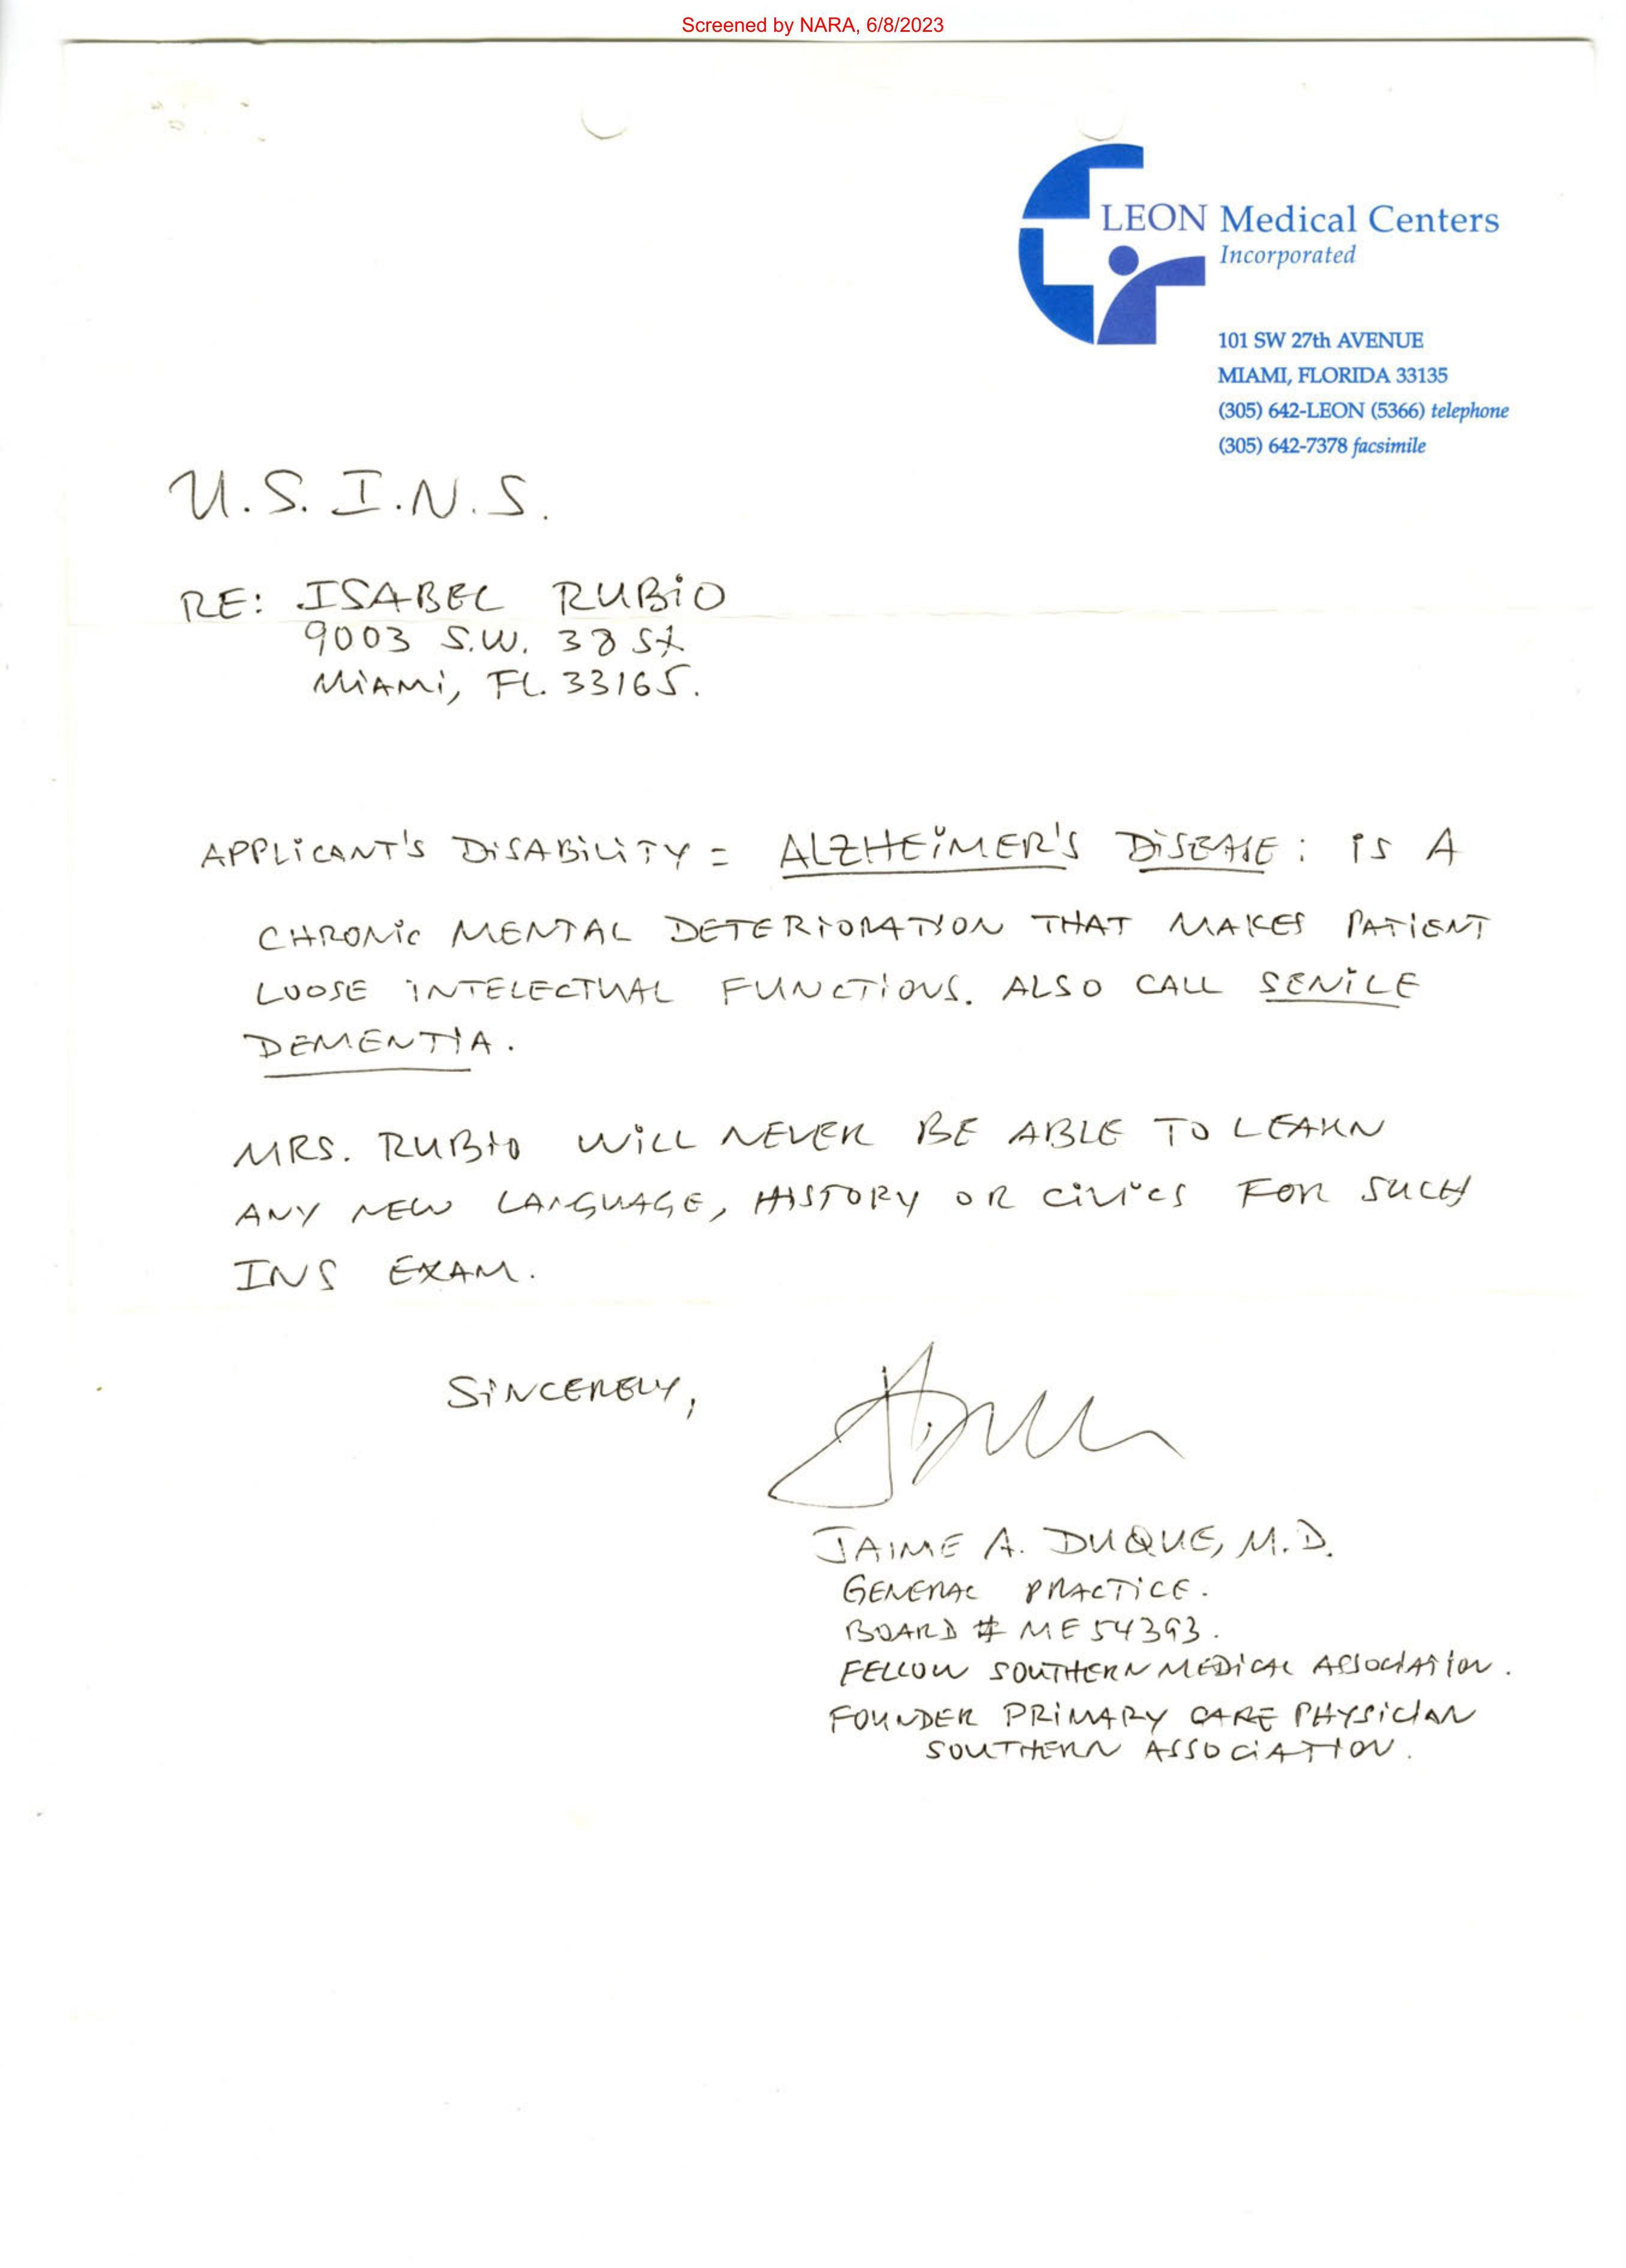 Screened by NARA, 6/8/2023
LEON Medical Centers
Incorporated
101 SW 27th AVENUE
MIAMI, FLORIDA 33135
(305) 642-LEON (5366) telephone
(305) 642-7378 facsimile
U.S. I.N.S.
RE: ISABEL RUBIO
9003 S.W. 38 St
MIAMI, FL. 33165.
APPLICANT'S DISABILITY = ALZHEIMER'S DISEASE: IS A
CHRONIC MENTAL DETERIORATION THAT MAKES PATIENT
LOOSE INTELECTUAL FUNCTIONS. ALSO CALL SENILE
DEMENTIA.
MRS. RUBIO WILL NEVER BE ABLE TO LEARN
ANY NEW LANGUAGE, HISTORY OR CIVICS FOR SUCH
INS EXAM.
SINCERELY,
JAIME A. DUQUE, M.D.
GENERAL PRACTICE.
BOARD # ME 54393.
FELLOW SOUTHERN MEDICAL ASSOCIATION.
FOUNDER PRIMARY CARE PHYSICIAN
SOUTHERN ASSOCIATION.